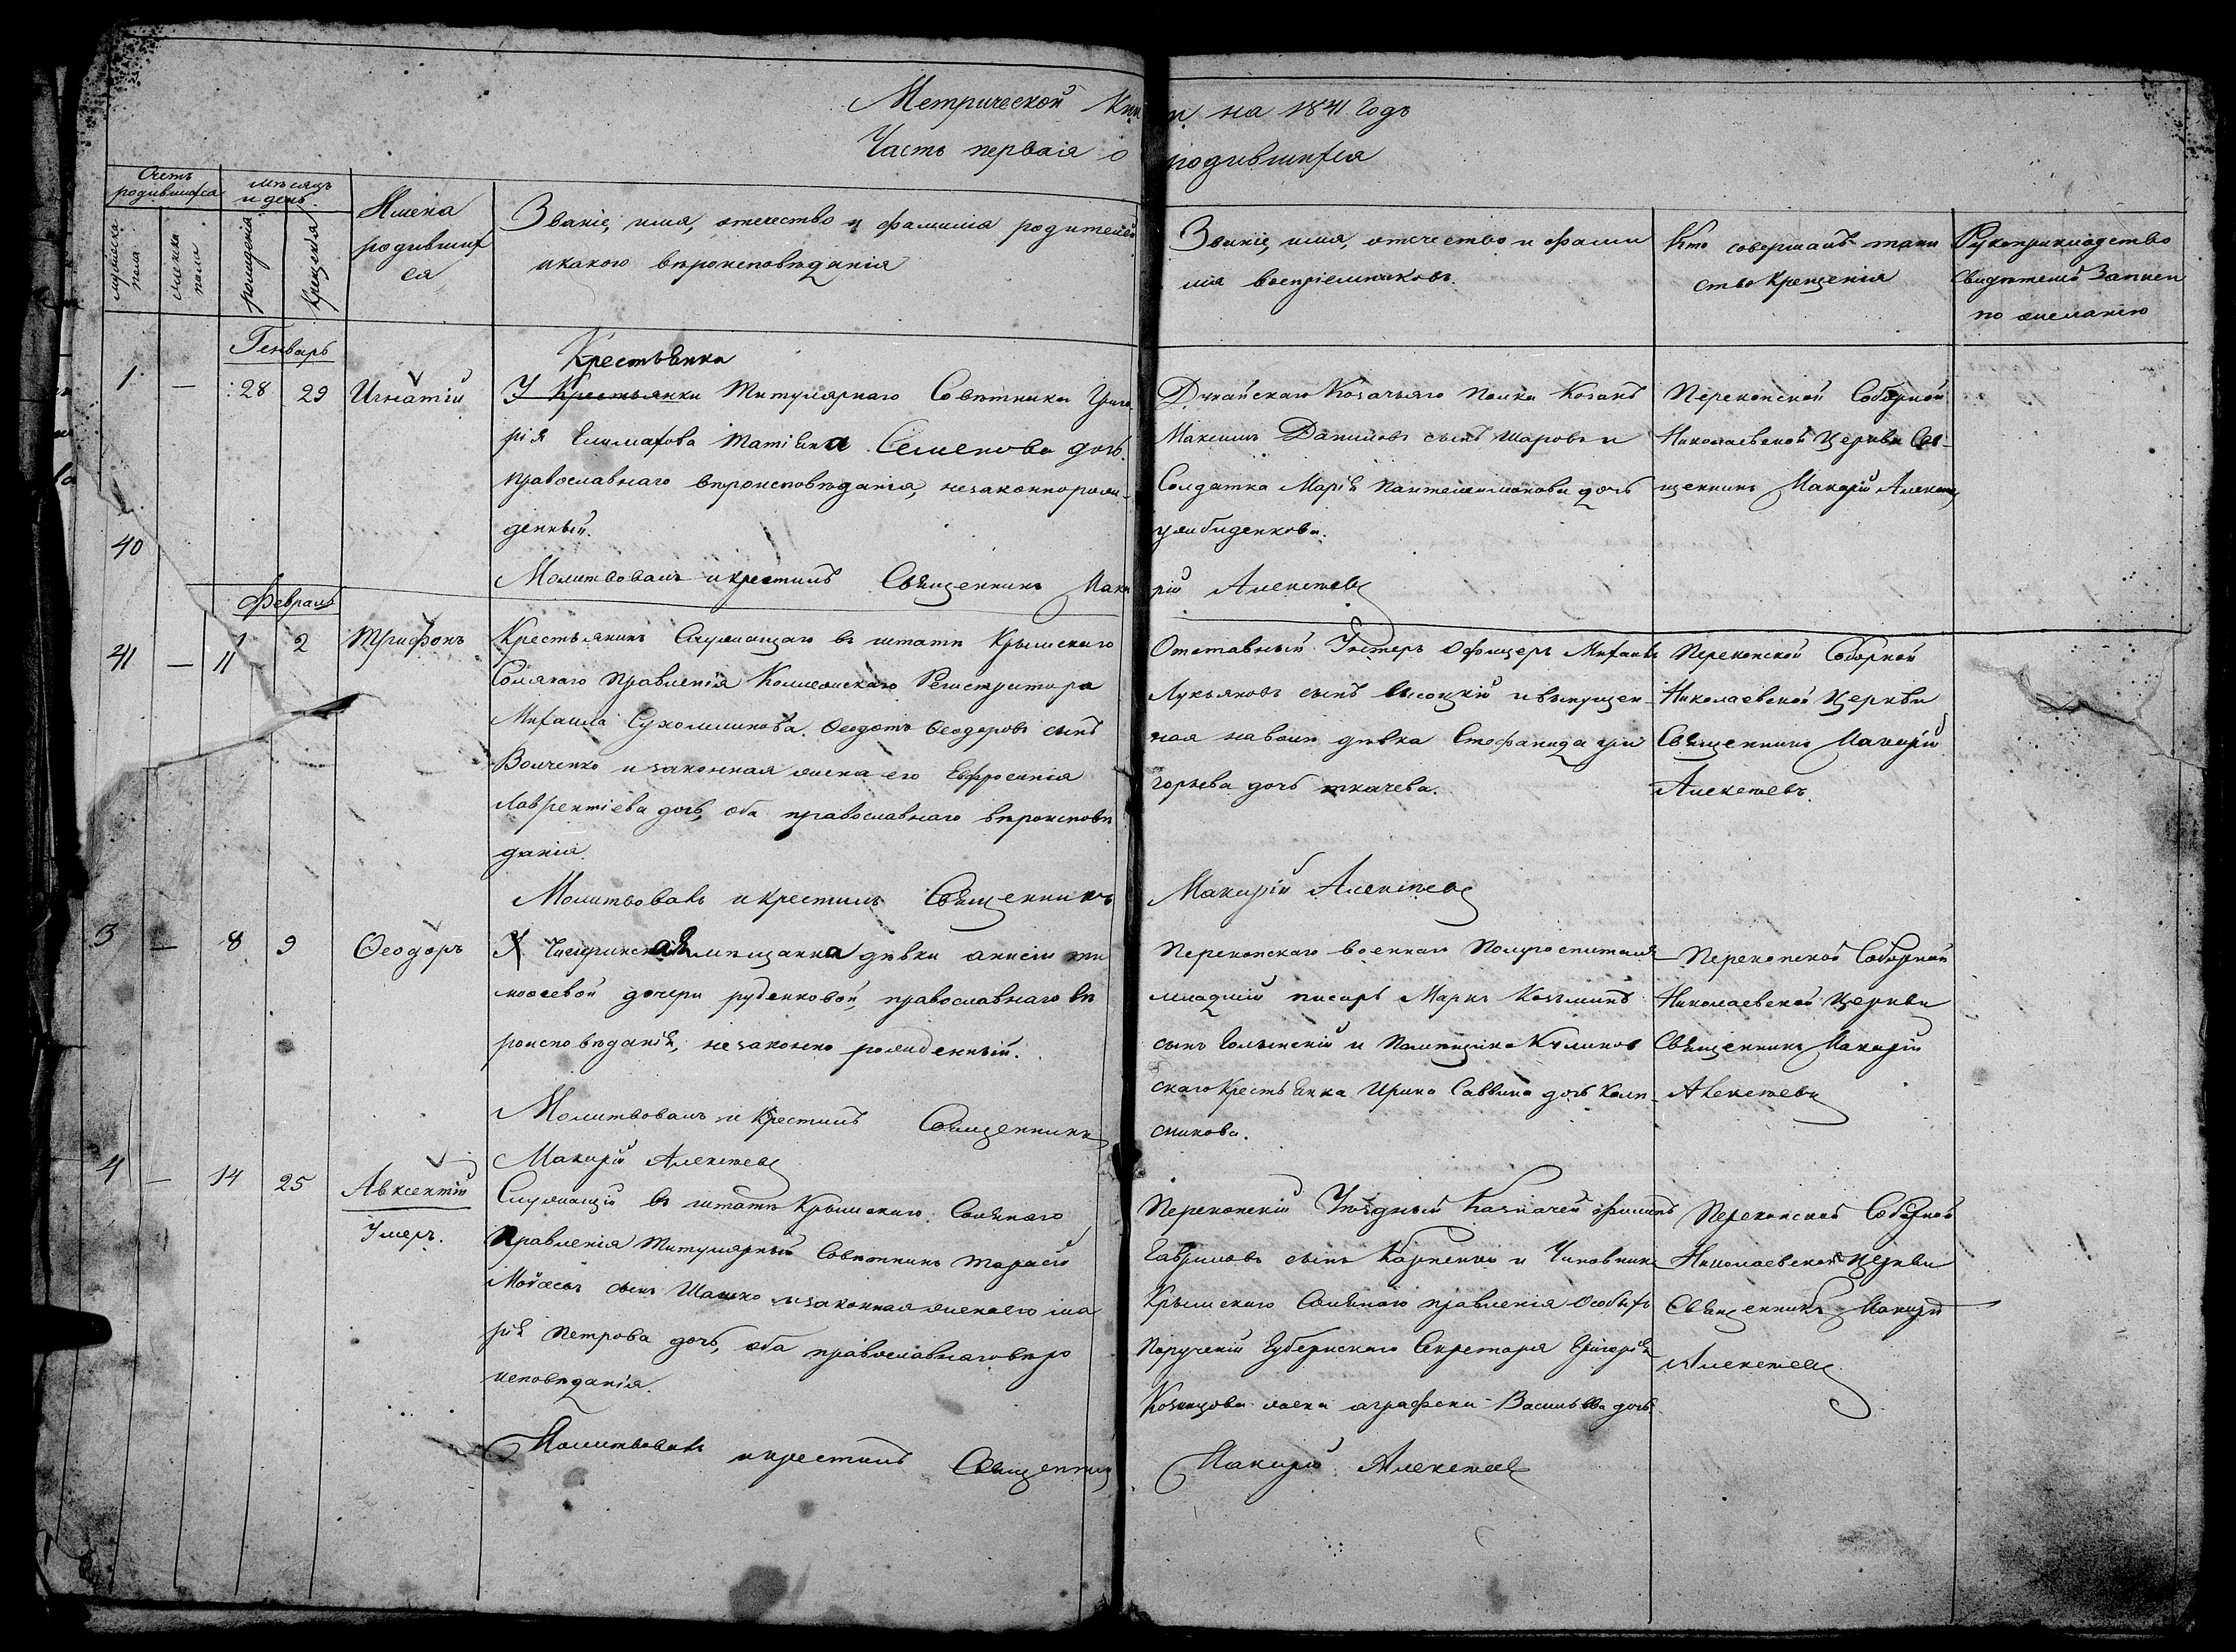 Метрической Кни
ги на 1841 Годъ
Часть первая о
родившихся
Счетъ родившихся
мѣсяцъ и день
мужеска пола
женска пола
рожденія
Крещенія
Имена
родивших
ся
Званіе, имя, отечество и фамилія родителей
и какого вѣроисповѣданія
Званіе, имя, отечество и фами
лія воспріемниковъ.
Кто совершалъ таин
ство Крещенія
Рукоприкладство
Свидѣтелей Записи
по желанію
Генварь
1. — 28 29 Игнатій
Крестьянка
У Крестьянки Титулярнаго Совѣтника Григо
рія Татіяна Семенова дочь.
православнаго вѣроисповѣданія, незаконнорож-
денный.
Молитвовалъ и крестилъ Священникъ Мака
Дунайскаго Козачьяго Полка Козакъ
Максимъ Даниловъ сынъ Шаровъ и
Солдатка Марія Пантелеимонова дочь
рій Алексѣевъ
Перекопской Соборной
Николаевской Церкви Свя-
щенникъ Макарій Алексѣевъ
40
Февраль
41 — 11 1 2 Трифонъ
Крестьянинъ Служащаго въ штатѣ Крымскаго
Солянаго Правленія Коллежскаго Регистратора
Михаила Сухомлинова. Ѳеодотъ Ѳеодоровъ сынъ
Волченко и законная жена его Евфросинія
Лаврентіева дочь, оба православнаго вѣроисповѣ
данія.
Молитвовалъ и крестилъ Священникъ
Отставный Унтеръ Офицеръ Михаилъ
Лукьяновъ сынъ Высоцкій и выпущен-
ная на волю дѣвка Стефанида Гри
горьева дочь Ткачева.
Макарій Алексѣевъ
Перекопской Соборной
Николаевской Церкви
Священникъ Макарій
Алексѣевъ.
3 — 8 9 Ѳеодоръ
У Чигиринская мѣщанка дѣвки Анисіи Ти
моѳеевой дочери Руденковой, православнаго вѣ
роисповѣданія, незаконно рожденный.
Молитвовалъ и Крестилъ Священникъ
Макарій Алексѣевъ
Перекопскаго военнаго Полугоспиталя
младшій писарь Маркъ Козьминъ
сынъ Волынскій и Помѣщика Куликов
скаго Крестьянка Ирина Саввина дочь Колѣ-
сникова.
Перекопской Соборной
Николаевской Церкви
Священникъ Макарій
Алексѣевъ
4 — 14 25 Авксентій
Умеръ.
Служащій въ штатѣ Крымскаго Солянаго
Правленія Титулярный Совѣтникъ Тарасій
сынъ Шашко и законная жена его Ма
рія Петрова дочь, оба православнаго вѣро
исповѣданія.
Молитвовалъ и крестилъ Священникъ
Перекопскій Уѣздный Казначей Филипъ
Гавриловъ сынъ Карпенко и Чиновника
Крымскаго Солянаго правленія Особыхъ
Порученій Губернскаго Секретаря Григорія
Казнцова жена Аграфена Васильева дочь.
Макарій Алексѣевъ
Перекопской Соборной
Николаевской Церкви
Священникъ Макарій
Алексѣевъ